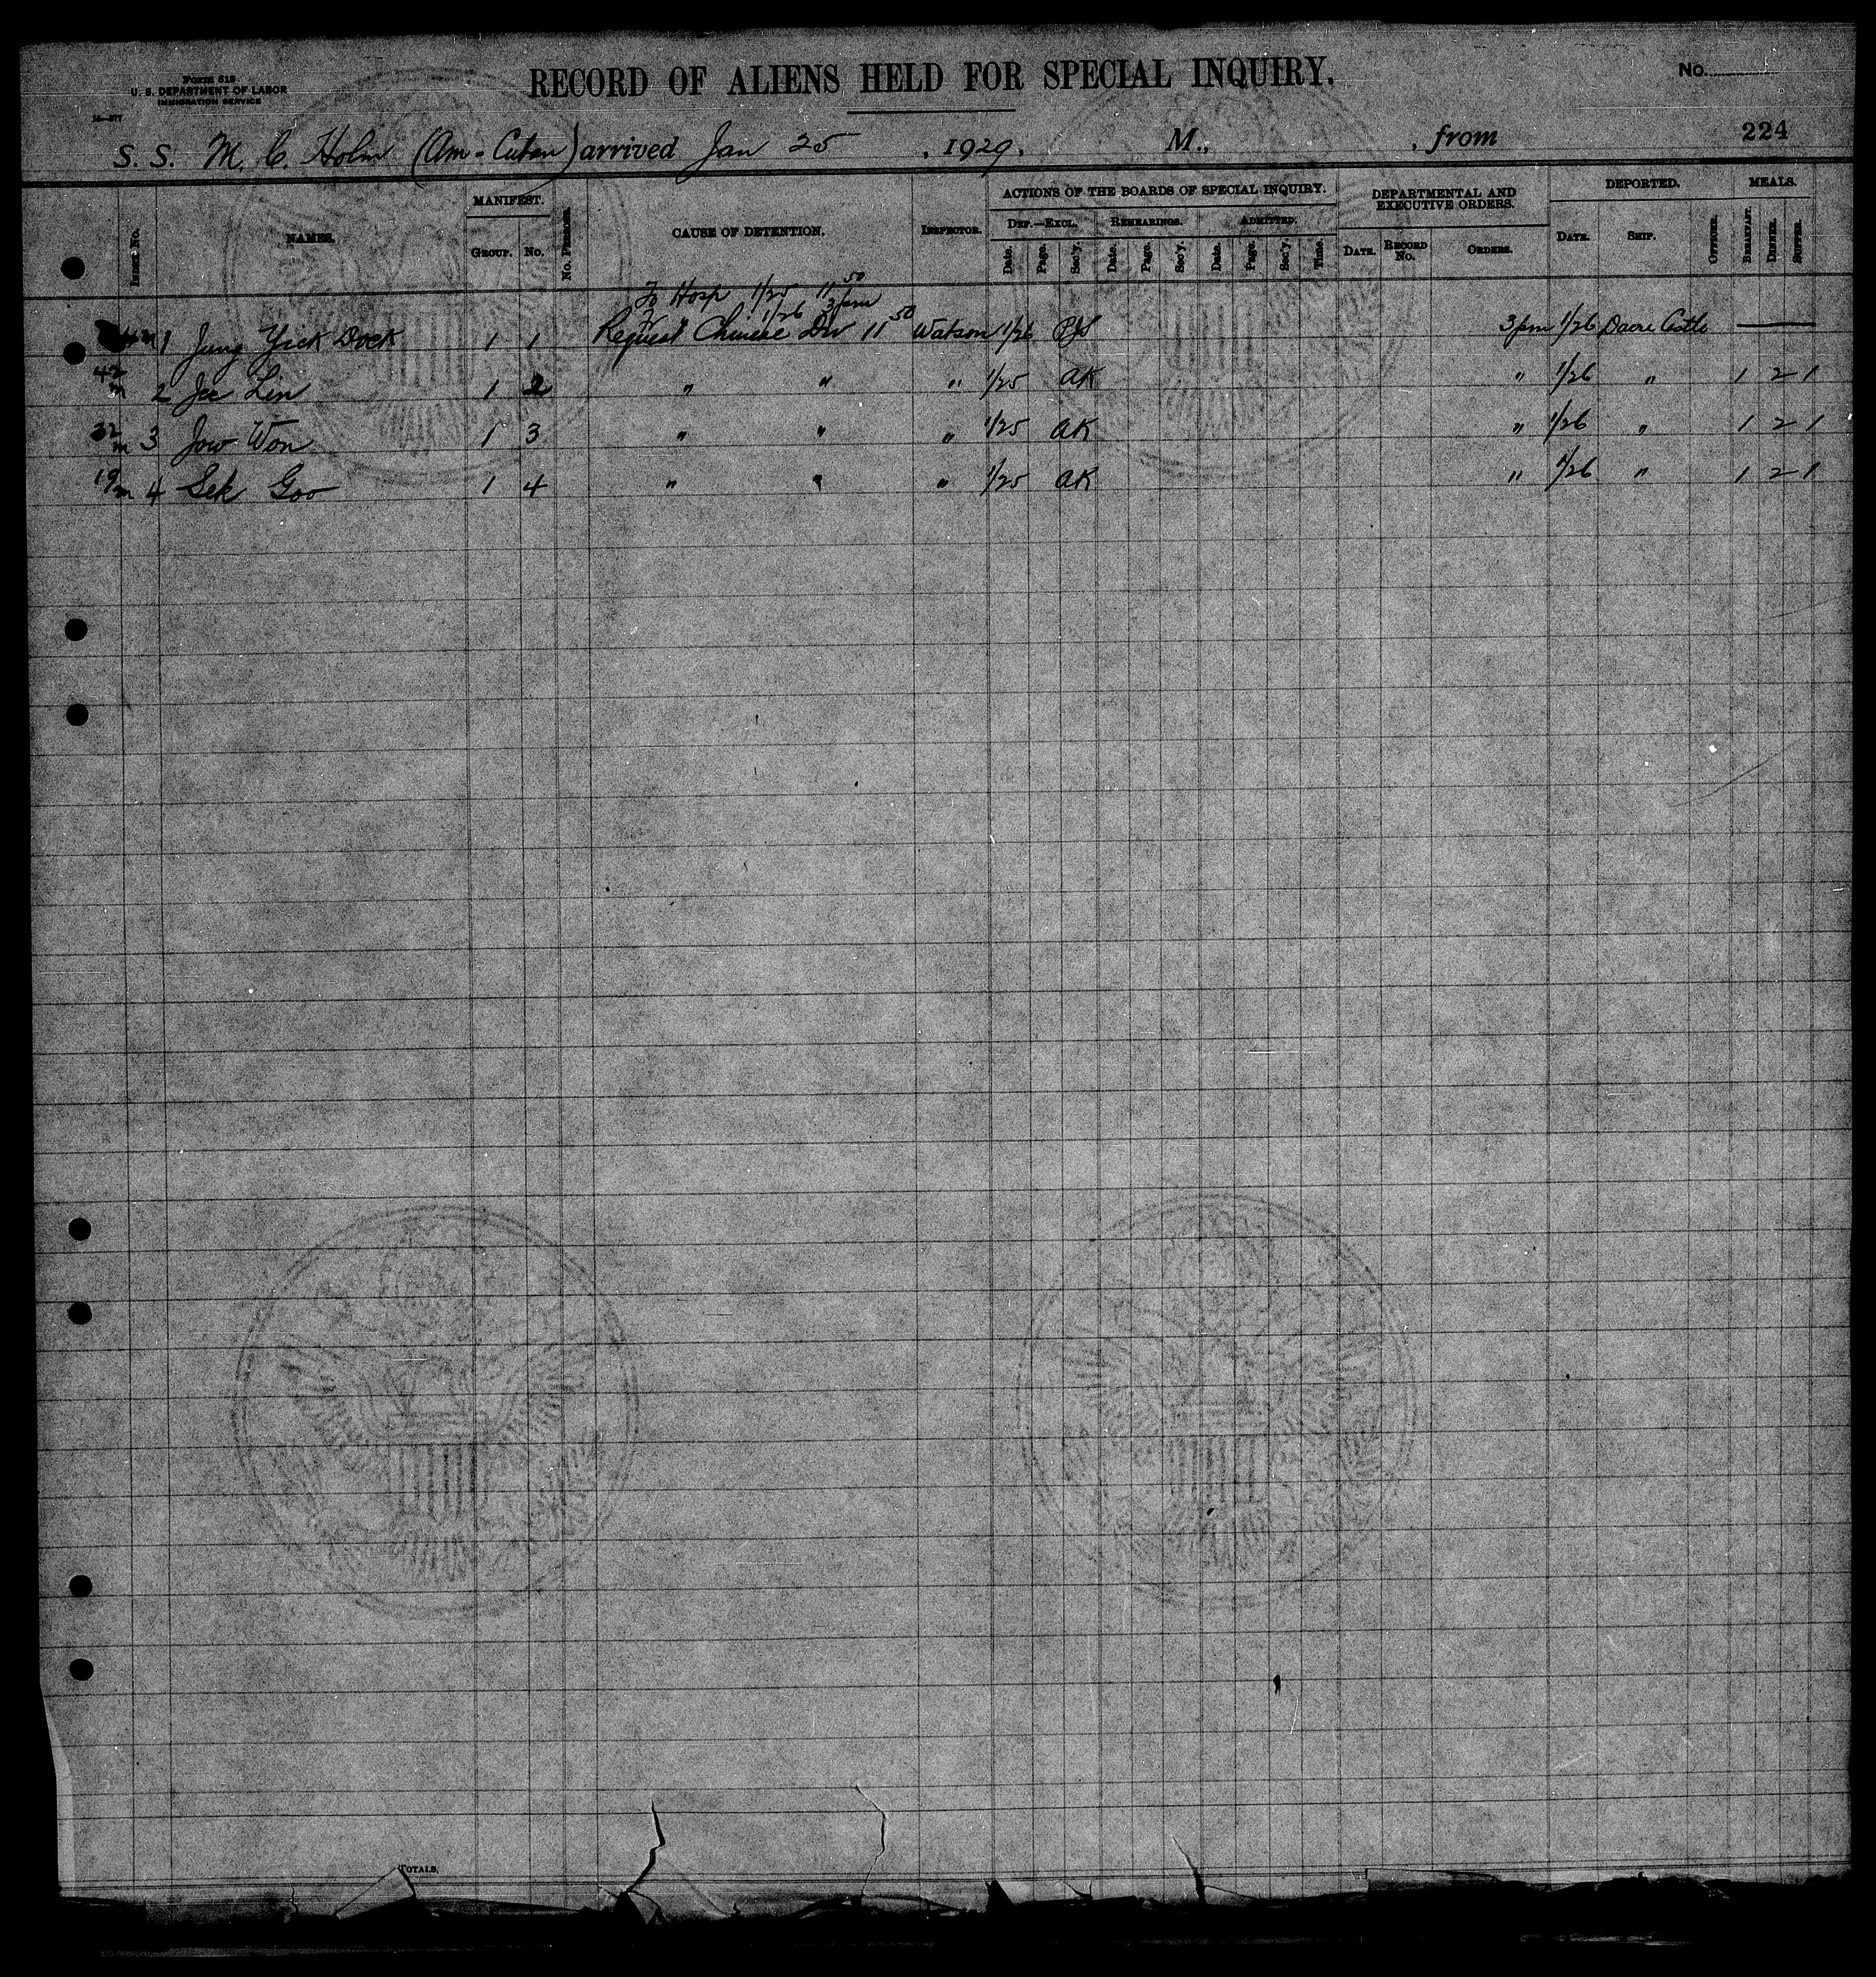 Form 618
U. S. DEPARTMENT OF LABOR
IMMIGRATION SERVICE
RECORD OF ALIENS HELD FOR SPECIAL INQUIRY.
No.
S. S. M. C. Holm (Am-Cuban) arrived Jan 25, 1929, M., , from 224
NAMES. MANIFEST. GROUP. No. No. PERSONS. CAUSE OF DETENTION. INSPECTOR. ACTIONS OF THE BOARDS OF SPECIAL INQUIRY. DEF.—EXCL. Date. Page. Sec'y. REHEARINGS. Date. Page. Sec'y. ADMITTED. Date. Page. Sec'y. Time. DEPARTMENTAL AND EXECUTIVE ORDERS. DATE. RECORD No. ORDERS. DEPORTED. DATE. SHIP. OFFICER. MEALS. BREAKFAST. DINNER. SUPPER.
To Hosp 1/25 11 50
Fr " 1/26 3 pm
m 1 Jung Yick Dock 1 1 Request Chinese Div 11 50 Watson 1/26 3 pm 1/26 Dacre Castle —
42 m 2 Jee Len 1 2 " " " 1/25 AK " 1/26 " 1 2 1
32 m 3 Jow Won 1 3 " " " 1/25 AK " 1/26 " 1 2 1
19 m 4 Sek Goo 1 4 " " " 1/25 AK " 1/26 " 1 2 1
TOTALS,